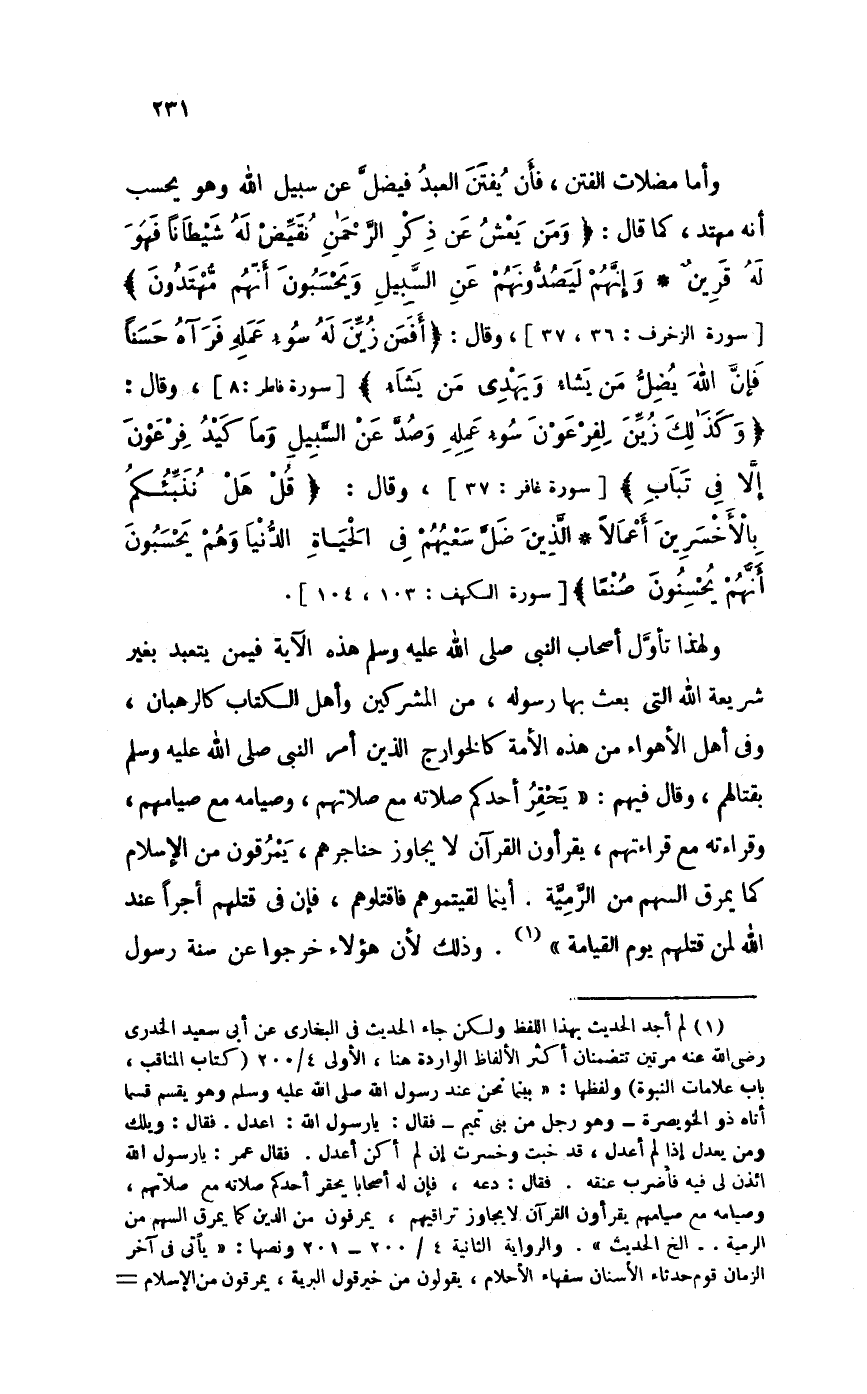 ٢٣١
وأما مضلات الفتن ، فأَن يُفتَنَ العبدُ فيضلَّ عن سبيل الله وهو يحسب
أنه مهتد ، كما قال : ﴿ وَمَن يَعْشُ عَن ذِكْرِ الرَّحْمَٰنِ نُقَيِّضْ لَهُ شَيْطَانًا فَهُوَ
لَهُ قَرِينٌ * وَإِنَّهُمْ لَيَصُدُّونَهُمْ عَنِ السَّبِيلِ وَيَحْسَبُونَ أَنَّهُم مُّهْتَدُونَ ﴾
[ سورة الزخرف : ٣٦ ، ٣٧ ] ، وقال : ﴿ أَفَمَن زُيِّنَ لَهُ سُوءُ عَمَلِهِ فَرَآهُ حَسَنًا
فَإِنَّ اللهَ يُضِلُّ مَن يَشَاءُ وَيَهْدِى مَن يَشَاءُ ﴾ [ سورة فاطر : ٨ ] ، وقال :
﴿ وَكَذَٰلِكَ زُيِّنَ لِفِرْعَوْنَ سُوءُ عَمَلِهِ وَصُدَّ عَنْ السَّبِيلِ وَمَا كَيْدُ فِرْعَوْنَ
إِلَّا فِى تَبَابٍ ﴾ [ سورة غافر : ٣٧ ] ، وقال : ﴿ قُلْ هَلْ نُنَبِّئُكُمْ
بِالْأَخْسَرِينَ أَعْمَالاً * الَّذِينَ ضَلَّ سَعْيُهُمْ فِى الْحَيَاةِ الدُّنْيَا وَهُمْ يَحْسَبُونَ
أَنَّهُمْ يُحْسِنُونَ صُنْعًا ﴾ [ سورة الكهف : ١٠٣ ، ١٠٤ ] .
ولهذا تأوَّل أصحاب النبى صلى الله عليه وسلم هذه الآية فيمن يتعبد بغير
شريعة الله التى بعث بها رسوله ، من المشركين وأهل الكتاب كالرهبان ،
وفى أهل الأهواء من هذه الأمة كالخوارج الذين أمر النبى صلى الله عليه وسلم
بقتالهم ، وقال فيهم : « يَحْقِرُ أحدكم صلاته مع صلاتهم ، وصيامه مع صيامهم ،
وقراءته مع قراءتهم ، يقرأون القرآن لا يجاوز حناجرهم ، يَمْرُقون من الإسلام
كما يمرق السهم من الرَّمِيَّة . أينما لقيتموهم فاقتلوهم ، فإن فى قتلهم أجراً عند
الله لمن قتلهم يوم القيامة » (١) . وذلك لأن هؤلاء خرجوا عن سنة رسول
(١) لم أجد الحديث بهذا اللفظ ولكن جاء الحديث فى البخارى عن أبى سعيد الخدرى
رضى الله عنه مرتين تتضمنان أكثر الألفاظ الواردة هنا ، الأولى ٤/ ٢٠٠ ( كتاب المناقب ،
باب علامات النبوة) ولفظها : « بينما نحن عند رسول الله صلى الله عليه وسلم وهو يقسم قسما
أتاه ذو الخويصرة – وهو رجل من بنى تميم – فقال : يا رسول الله : اعدل . فقال : ويلك
ومن يعدل إذا لم أعدل ، قد خبت وخسرت إن لم أكن أعدل . فقال عمر : يا رسول الله
ائذن لى فيه فأضرب عنقه . فقال : دعه ، فإن له أصحابا يحقر أحدكم صلاته مع صلاتهم ،
وصيامه مع صيامهم يقرأون القرآن لا يجاوز تراقيهم ، يمرقون من الدين كما يمرق السهم من
الرمية . . الخ الحديث » . والرواية الثانية ٤ / ٢٠٠ – ٢٠١ ونصها : « يأتى فى آخر
الزمان قوم حدثاء الأسنان سفهاء الأحلام ، يقولون من خير قول البرية ، يمرقون من الإسلام =